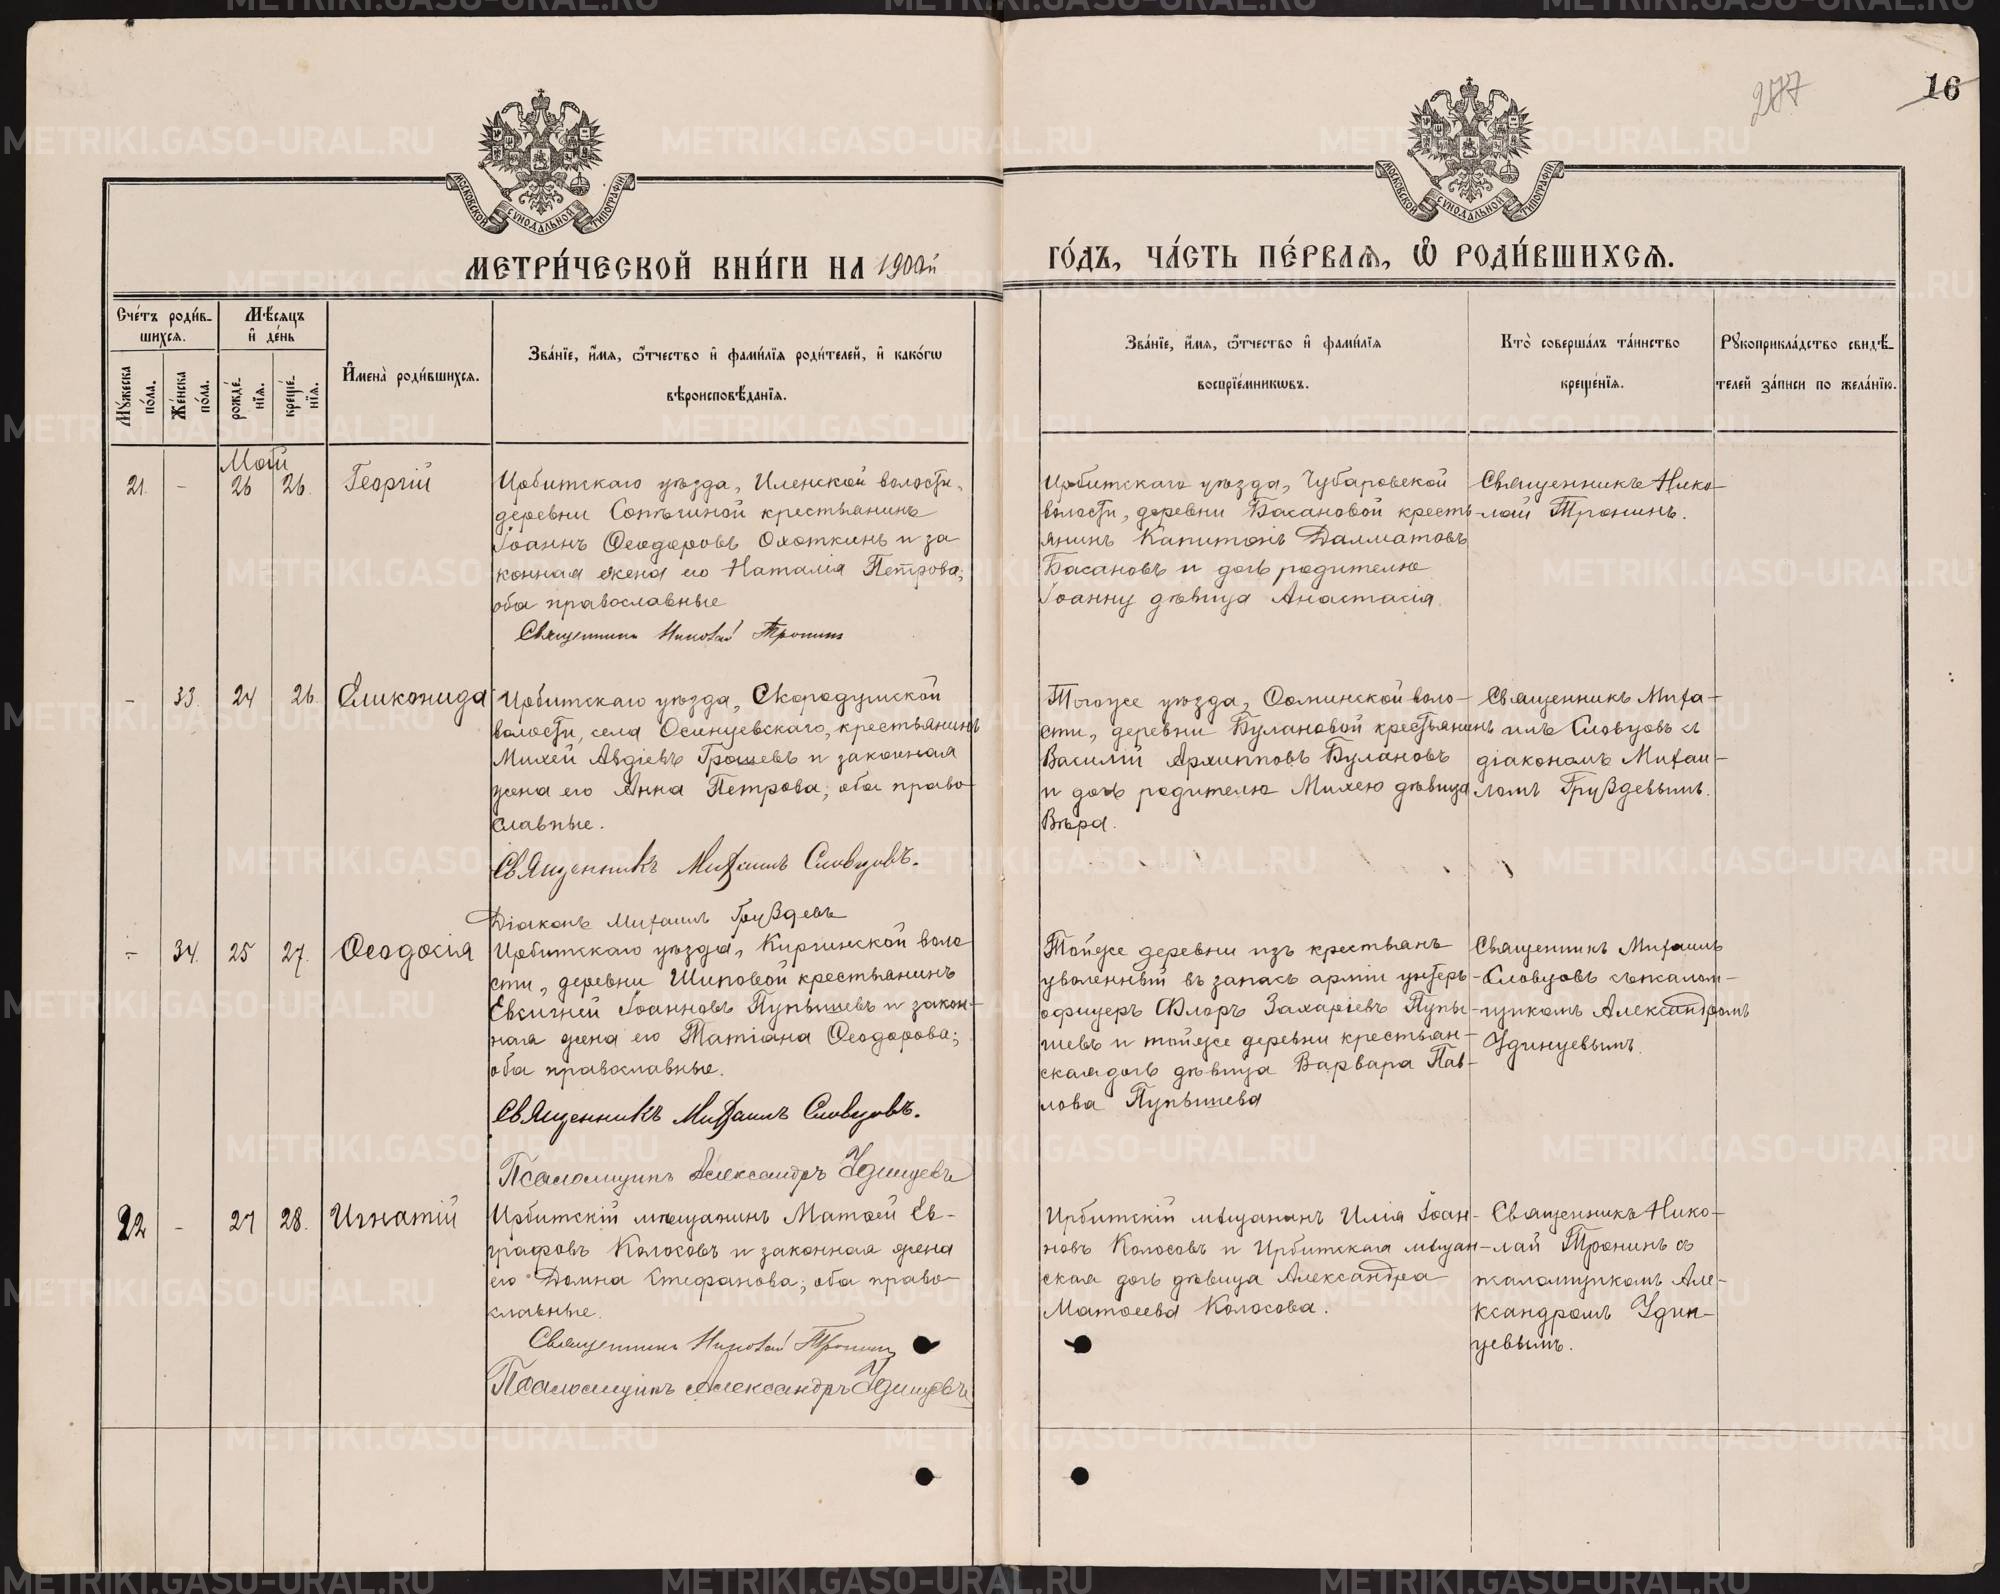 277
16
МОСКОВСКОЙ СѴНОДАЛЬНОЙ ТИПОГРАФІИ
МОСКОВСКОЙ СѴНОДАЛЬНОЙ ТИПОГРАФІИ
МЕТРИ́ЧЕСКОЙ КНИ́ГИ НА 1900й
ГО́ДЪ, ЧА́СТЬ ПЕ́РВАѦ, Ѽ РОДИ́ВШИХСѦ.
Сче́тъ роди́в-
шихсѧ.
Мꙋ́жеска по́ла.
Же́нска по́ла.
Мѣ́сѧцъ
и҆ де́нь
рожде́-
нїѧ.
креще́-
нїѧ.
И҆мена̀ роди́вшихсѧ.
Зва́нїе, и҆́мѧ, ѻ҆́тчество и҆ фами́лїѧ роди́телей, и҆ како́гѡ
вѣроисповѣ́данїѧ.
Зва́нїе, и҆́мѧ, ѻ҆́тчество и҆ фами́лїѧ
воспрїе́мникѡвъ.
Кто̀ соверша́лъ та́инство
креще́нїѧ.
Рꙋкоприкла́дство свидѣ́-
телей за́писи по жела́нїю.
Май
21. - 26 26. Георгій
Ирбитскаго уѣзда, Иленской волости,
деревни Сопѣгиной крестьянинъ
Іоаннъ Ѳеодоровъ Охоткинъ и за
конная жена его Наталія Петрова;
оба православные
Священникъ Николай Тронинъ
Ирбитскаго уѣзда, Чубаровской
волости, деревни Басановой кресть-
янинъ Капитонъ Далматовъ
Басановъ и дочь родителю
Іоанну дѣвица Анастасія.
Священникъ Нико-
лай Тронинъ.
- 33. 24 26 Еликонида
Ирбитскаго уѣзда, Скородумской
волости, села Осинцевскаго, крестьянинъ
Михей Авдіевъ Грошевъ и законная
жена его Анна Петрова; оба право-
славные.
Священникъ Михаилъ Словцовъ.
Діаконъ Михаилъ Груздевъ
Тогоже уѣзда, Ѳоминской воло-
сти, деревни Булановой крестьянинъ
Василій Архипповъ Булановъ
и дочь родителю Михею дѣвица
Вѣра.
Священникъ Миха-
илъ Словцовъ съ
діакономъ Михаи-
ломъ Груздевымъ.
- 34. 25 27. Ѳеодосія
Ирбитскаго уѣзда, Киргинской воло
сти, деревни Шиповой крестьянинъ
Евсигней Іоанновъ Пупышевъ и закон-
ная жена его Татіана Ѳеодорова;
оба православные.
Священникъ Михаилъ Словцовъ.
Псаломщикъ Александръ Удинцевъ
Тойже деревни изъ крестьянъ
уволенный въ запасъ арміи унтеръ
офицеръ Флоръ Захаріевъ Пупы-
шевъ и тойже деревни крестьян-
ская дочь дѣвица Варвара Пав-
лова Пупышева
Священникъ Михаилъ
Словцовъ съ псалом-
щикомъ Александромъ
Удинцевымъ.
22 - 27 28. Игнатій
Ирбитскій мѣщанинъ Матѳей Ев-
графовъ Колосовъ и законная жена
его Домна Стефанова; оба право-
славные.
Священникъ Николай Тронинъ
Псаломщикъ Александръ Удинцевъ
Ирбитскій мѣщанинъ Илія Іоан-
новъ Колосовъ и Ирбитская мѣщан-
ская дочь дѣвица Александра
Матѳеева Колосова.
Священникъ Нико-
лай Тронинъ съ
псаломщикомъ Але-
ксандромъ Удин-
цевымъ.
METRIKI.GASO-URAL.RU